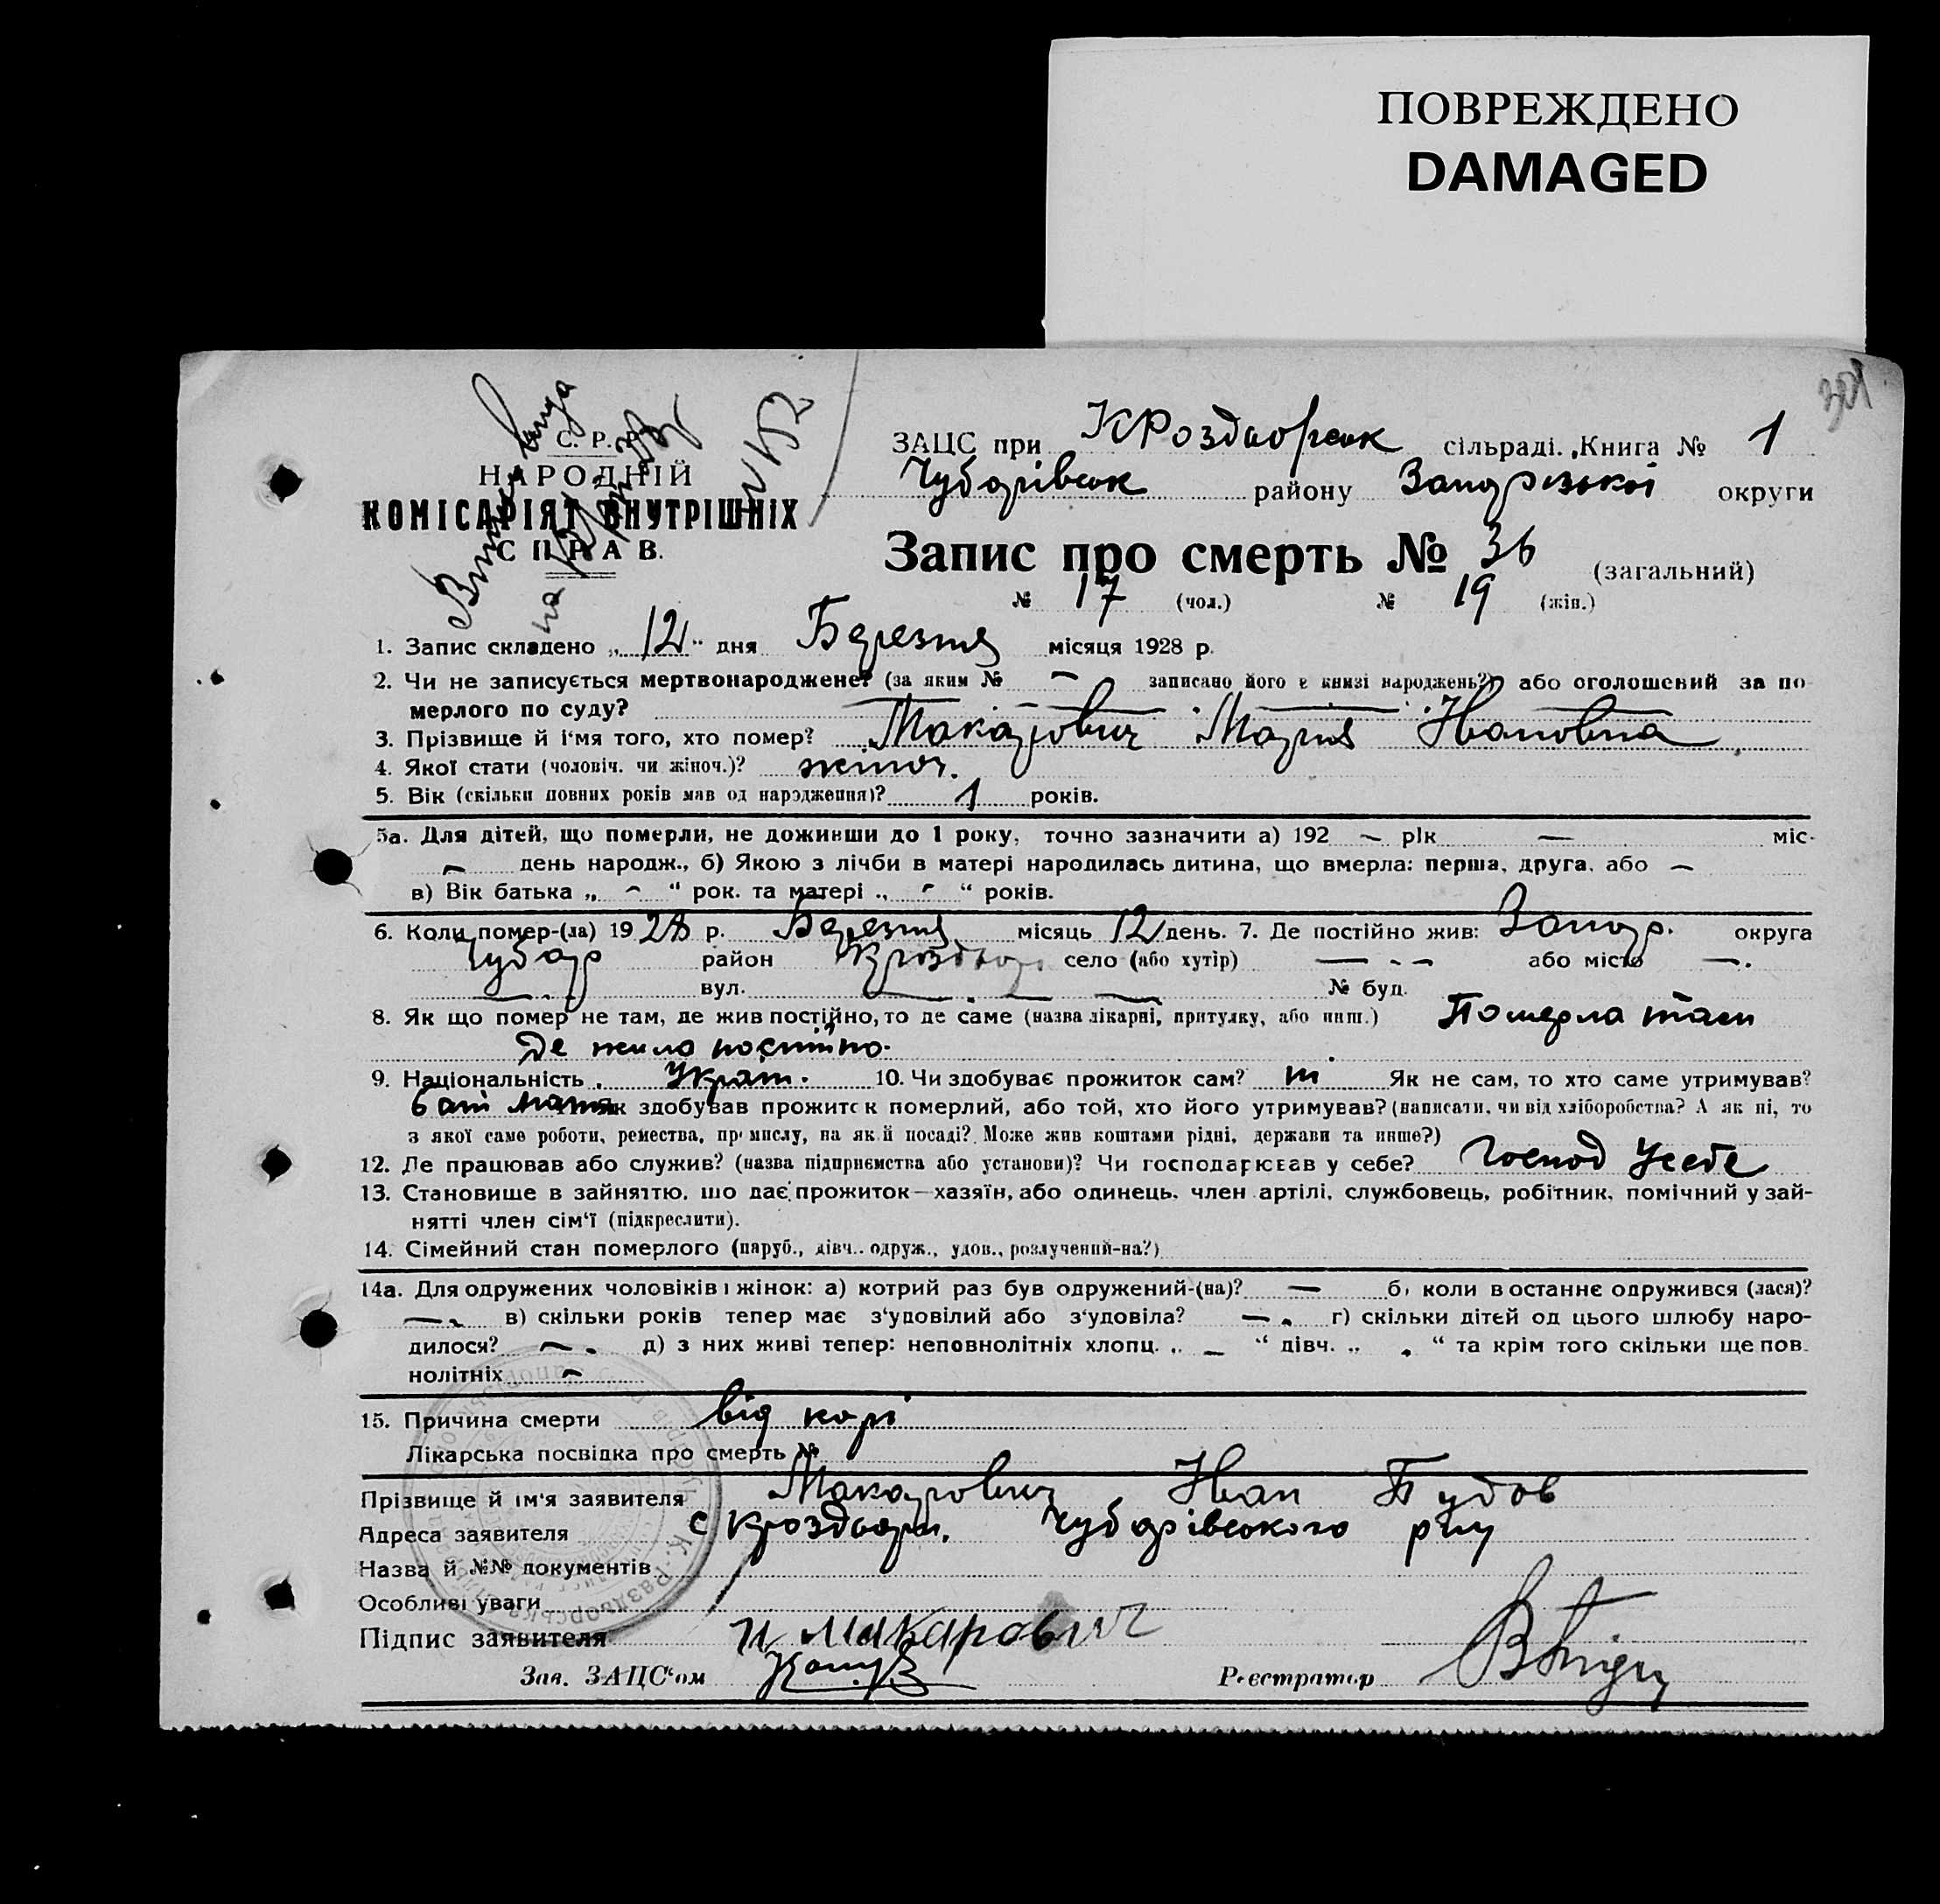 ПОВРЕЖДЕНО
DAMAGED
С. Р. Р.
НАРОДНІЙ
КОМІСАРІЯТ ВНУТРІШНІХ
СПРАВ.
ЗАЦС при КРоздворськ сільраді. Книга № 1
Чубарівськ району Запорізької округи
Запис про смерть № 36 (загальний)
№ 17 (чол.) № 19 (жін.)
1. Запис складено „12“ дня Березня місяця 1928 р.
2. Чи не записується мертвонароджене? (за яким № — записано його в книзі народжень?) або оголошений за по
мерлого по суду?
3. Прізвище й і'мя того, хто помер? Макарович Мария Ивановна
4. Якої стати (чоловіч. чи жіноч.)? жіноч.
5. Вік (скільки повних років мав од народження)? 1 років.
5а. Для дітей, що померли, не доживши до 1 року, точно зазначити а) 192 — рік — міс-
— день народж., б) Якою з лічби в матері народилась дитина, що вмерла: перша, друга, або —
в) Вік батька „ - “ рок. та матері „ - “ років.
6. Коли помер-(ла) 1928 р. Березня місяць 12 день. 7. Де постійно жив: Запор. округа
Чубар район Кроздвор село (або хутір) — - — або місто —.
вул. — № буд.
8. Як що помер не там, де жив постійно, то де саме (назва лікарні, притулку, або инш.) Померла там
де жила постійно.
9. Національність Україн. 10. Чи здобуває прожиток сам? ні Як не сам, то хто саме утримував?
Як здобував прожиток померлий, або той, хто його утримував? (написати, чи від хліборобства? А як ні, то
з якої саме роботи, ремества, промислу, на якій посаді? Може жив коштами рідні, держави та инше?)
12. Де працював або служив? (назва підприємства або установи)? Чи господарював у себе? Господ Усебе
13. Становище в зайняттю, що дає прожиток — хазяїн, або одинець, член артілі, службовець, робітник, помічний у зай-
нятті член сім'ї (підкреслити).
14. Сімейний стан померлого (паруб., дівч.. одруж., удов., розлучений-на?)
14а. Для одружених чоловіків і жінок: а) котрий раз був одружений-(на)? — б) коли востаннє одружився (лася)?
— в) скільки років тепер має з'удовілий або з'удовіла? — г) скільки дітей од цього шлюбу наро-
дилося? — д) з них живі тепер: неповнолітніх хлопц. „ — “ дівч. „ “ та крім того скільки ще пов.
нолітніх —
15. Причина смерти від корі
Лікарська посвідка про смерть №
Прізвище й ім'я заявителя Макарович Иван
Адреса заявителя с Кроздвори. Чубарівського р-ну
Назва й №№ документів
Особливі уваги
Підпис заявителя И Макарович
Зав. ЗАЦС'ом
Реєстратор